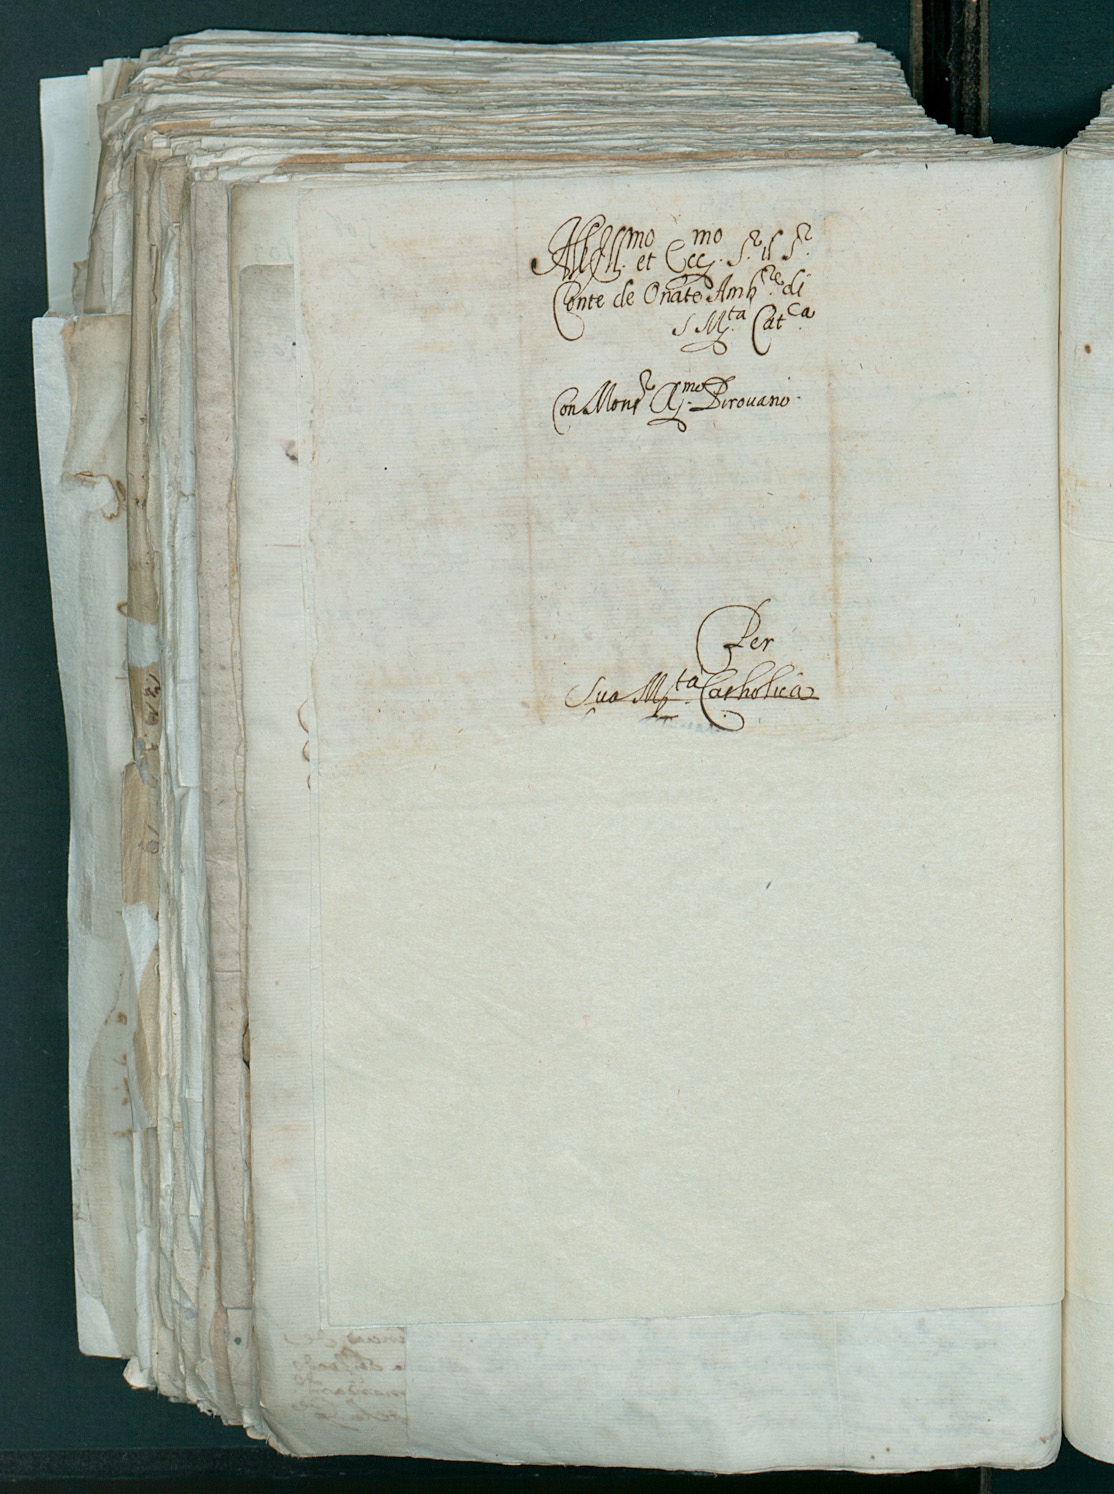 All Ill.mo et Ecc.mo S.r il S.r
Conte de Oñate Amb.re di
S M.ta Cat.ca
Con Mons.r Ag.mo Pirouano.
Per
Sua M.ta Catholica